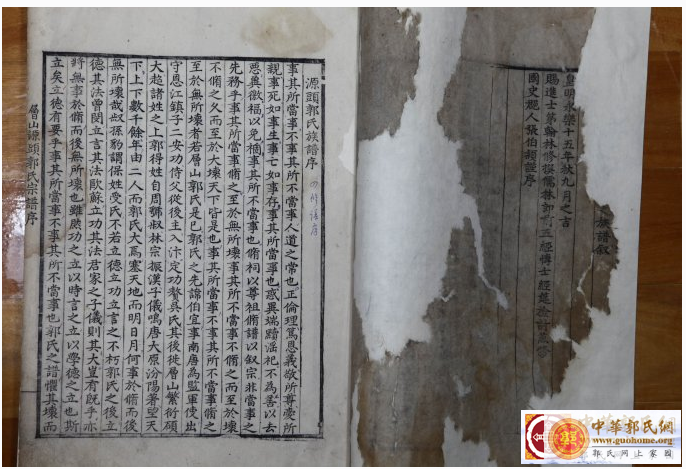 源頭郭氏族譜序
事其所當事不事其所不當事人道之常也正倫理篤恩義敬所尊愛所
親事死如生事亡如存事其所當事也惑異端黷淫祀不為善以去
惡與徼福以免禍事其所不當事也脩祠以尊祖脩譜以叙宗非當事之
先務乎事其所當事脩之至於無所壞事其所不當事不脩之而至於壞
不脩之久而至於大壞天下皆是也事其所當事不事其所不當事脩之
至於無所壞者若層山郭氏是已郭氏之先諱伯宜事南唐為監軍使出
守恩江鎮子二安功侍父從後主入汴定功贅吳氏其後徙層山繁衍碩
大越諸姓之上郭得姓自周虢叔林宗振漢子儀鳴唐大原汾陽著望天
下上下數千餘年由二人而郭氏大焉塞天地而明日月何事於脩而後
無所壞哉叔孫豹謂保姓受氏不若立德立功立言之不朽郭氏之後立
德其法曾閔立言其法歐蘇立功其法君家之子儀則其大豈有既乎亦
將無事於脩而後無所壞也雖然功之立以時言之立以學德之立也斯
立矣立德有要乎事其所當事不事其所不當事也郭氏之譜懼其壞而
層山源頭郭氏宗譜序
皇明永樂十五年秋九月之吉
賜進士第翰林修撰儒林郎
國史
族譜叙
中華郭氏網
www.guohome.org
郭氏網上家園